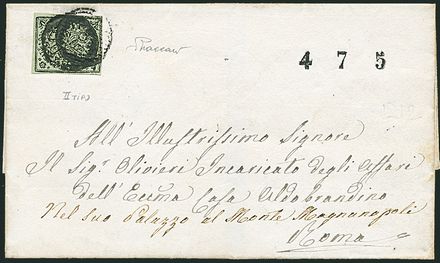 4 7 5
II TIPO
All'Illustrissimo Signore
Il Sigr. Olivieri Incaricato degli Affari
dell'Eccma Casa Aldobrandino
Nel suo Palazzo al Monte Magnanapoli
Roma